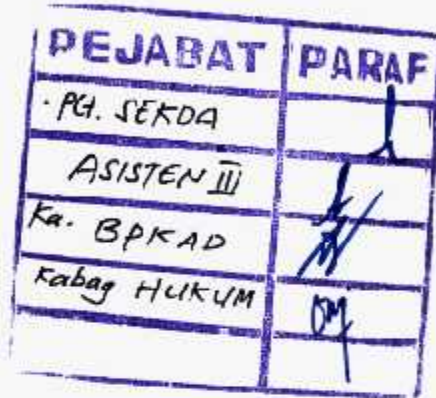 PEJABAT PARAF
· Plt. SEKDA
ASISTEN III
Ka. BPKAD
Kabag HUKUM